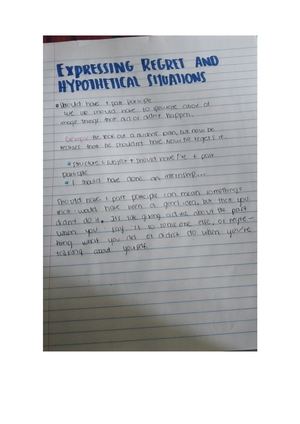 EXPRESSING REGRET AND
HYPOTHETICAL SITUATIONS
• Should have + past participle
We use should have to speculate about or
image things that did or didn't happen.
Example: He took out a student loan, but now he
realises that he shouldn't have. Now he regrets it.
• Structure: subject + should have/'ve + past
participle
• I should have done an internship...
Should have + past participle can mean something
that would have been a good idea, but that you
didn't do it. It's like giving advice about the past
when you say it to someone else, or regre-
tting what you did or didn't do when you're
talking about yourself.